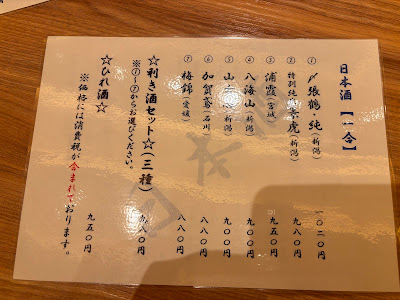 日本酒【一合】
① 〆張鶴・純(新潟) 一〇二〇円
② 特別純 虎(新潟) 九八〇円
③ 浦霞(宮城) 九五〇円
④ 八海山(新潟) 九〇〇円
⑤ 山 (新潟) 九〇〇円
⑥ 加賀鳶(石川) 八八〇円
⑦ 梅錦(愛媛) 八八〇円
☆利き酒セット☆(三種) 九八〇円
※①~⑦からお選びください。
☆ひれ酒☆ 九五〇円
※価格には消費税が含まれております。